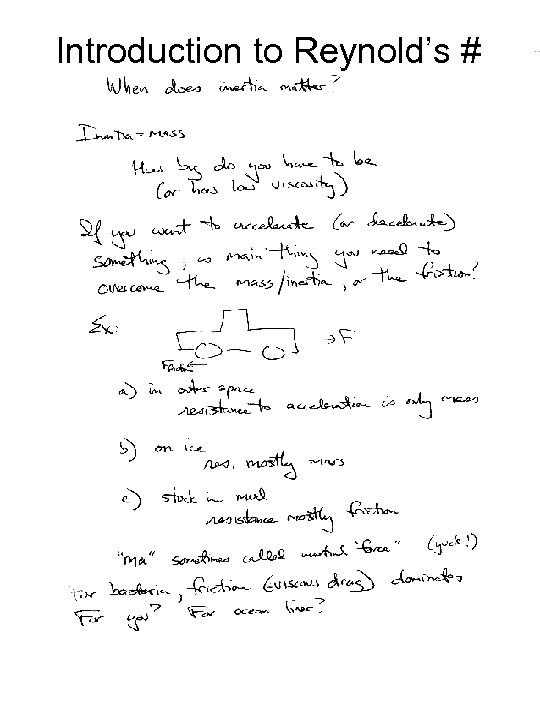 Introduction to Reynold's #
When does inertia matter?
Inertia = mass
How big do you have to be
(or how low viscosity)
If you want to accelerate (or decelerate)
something, is main thing you need to
overcome the mass/inertia, or the friction?
Ex:
→F
Friction ←
a) in outer space
resistance to acceleration is only mass
b) on ice
res. mostly mass
c) stuck in mud
resistance mostly friction
"ma" sometimes called inertial "force" (yuck!)
For bacteria, friction (viscous drag) dominates
For you? For ocean liner?